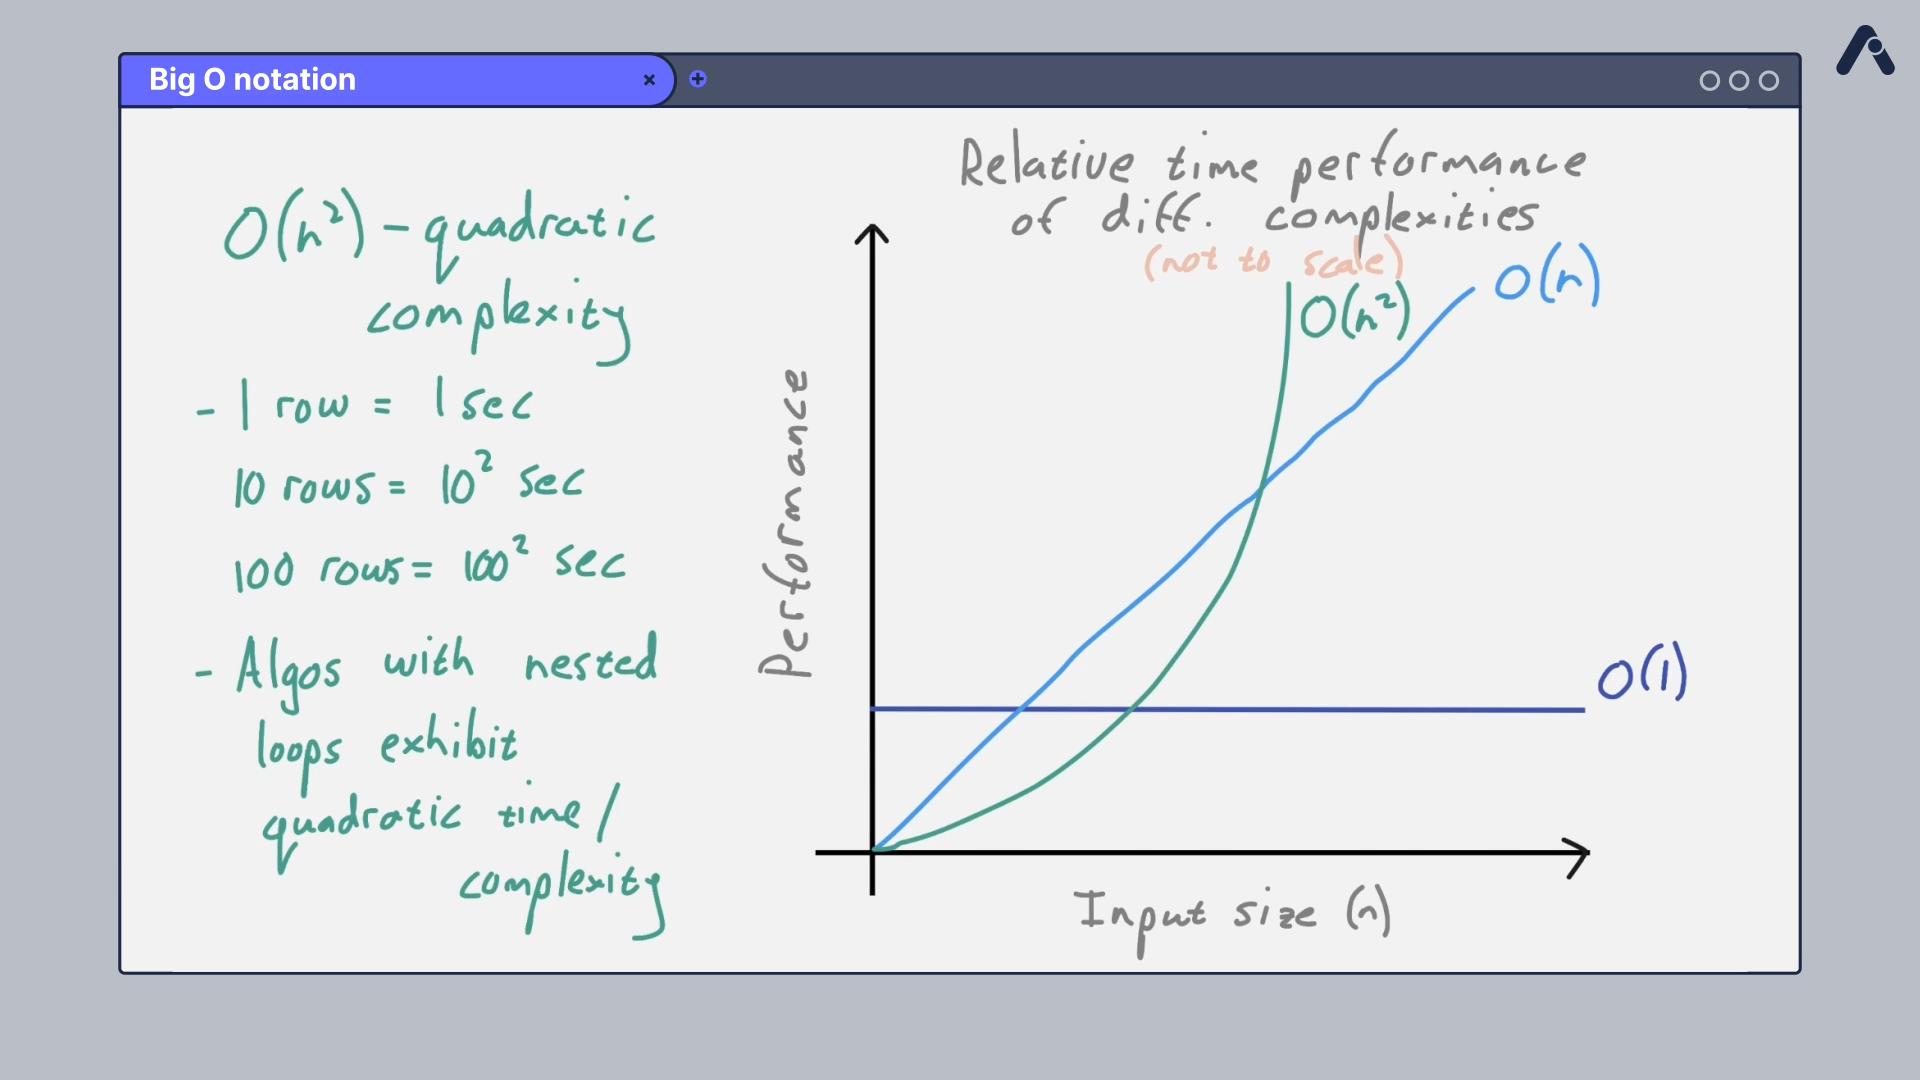 Big O notation
O(n²) - quadratic
complexity
- 1 row = 1 sec
10 rows = 10² sec
100 rows = 100² sec
- Algos with nested
loops exhibit
quadratic time/
complexity
Relative time performance
of diff. complexities
(not to scale)
O(n²)
O(n)
O(1)
Performance
Input size (n)